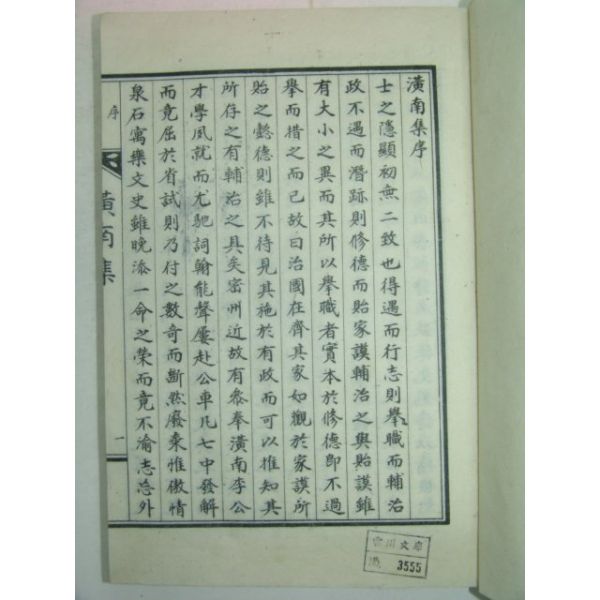 潢南集序
士之隱顯初無二致也得遇而行志則擧職而輔治
政不遇而潛跡則修德而貽家謨輔治之與貽謨雖
有大小之異而其所以擧職者實本於修德卽不過
擧而措之而已故曰治國在齊其家如觀於家謨所
貽之懿德則雖不待見其施於有政而可以推知其
所存之有輔治之具矣密州近故有參奉潢南李公
才學夙就而尤馳詞翰能聲屢赴公車凡七中發解
而竟屈於省試則乃付之數奇而斷然廢棄惟傲情
泉石寓樂文史雖晩添一命之榮而竟不渝志益外
序
潢南集
一
文庫
3555